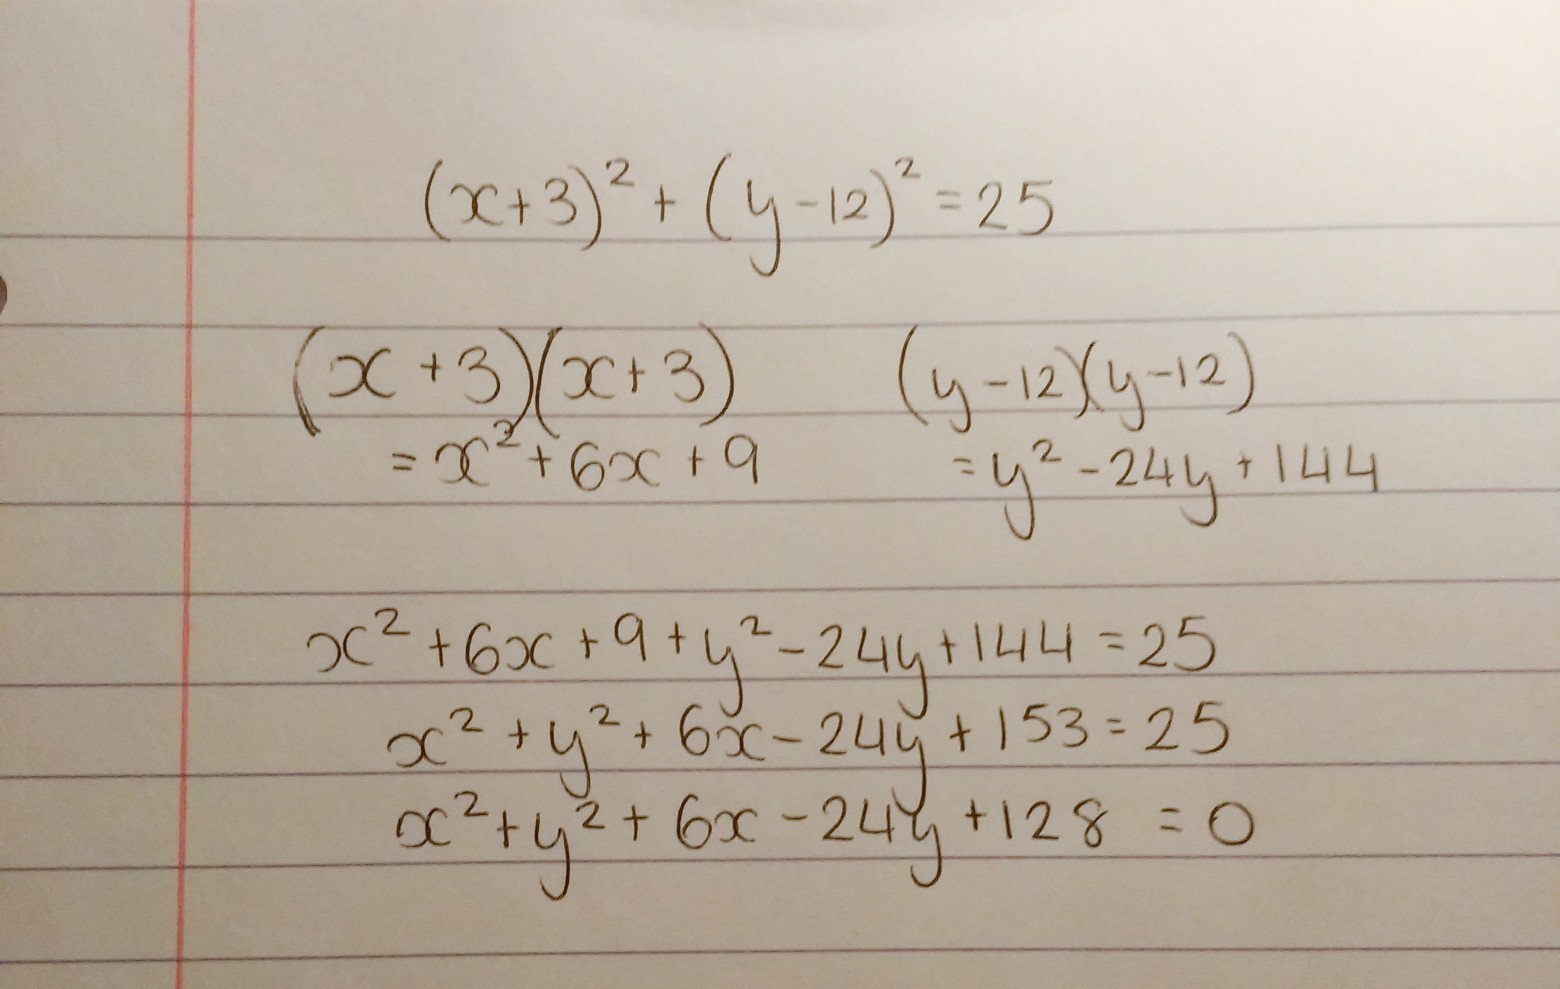 (x+3)² + (y-12)² = 25
(x+3)(x+3) (y-12)(y-12)
= x² + 6x + 9 = y² - 24y + 144
x² + 6x + 9 + y² - 24y + 144 = 25
x² + y² + 6x - 24y + 153 = 25
x² + y² + 6x - 24y + 128 = 0